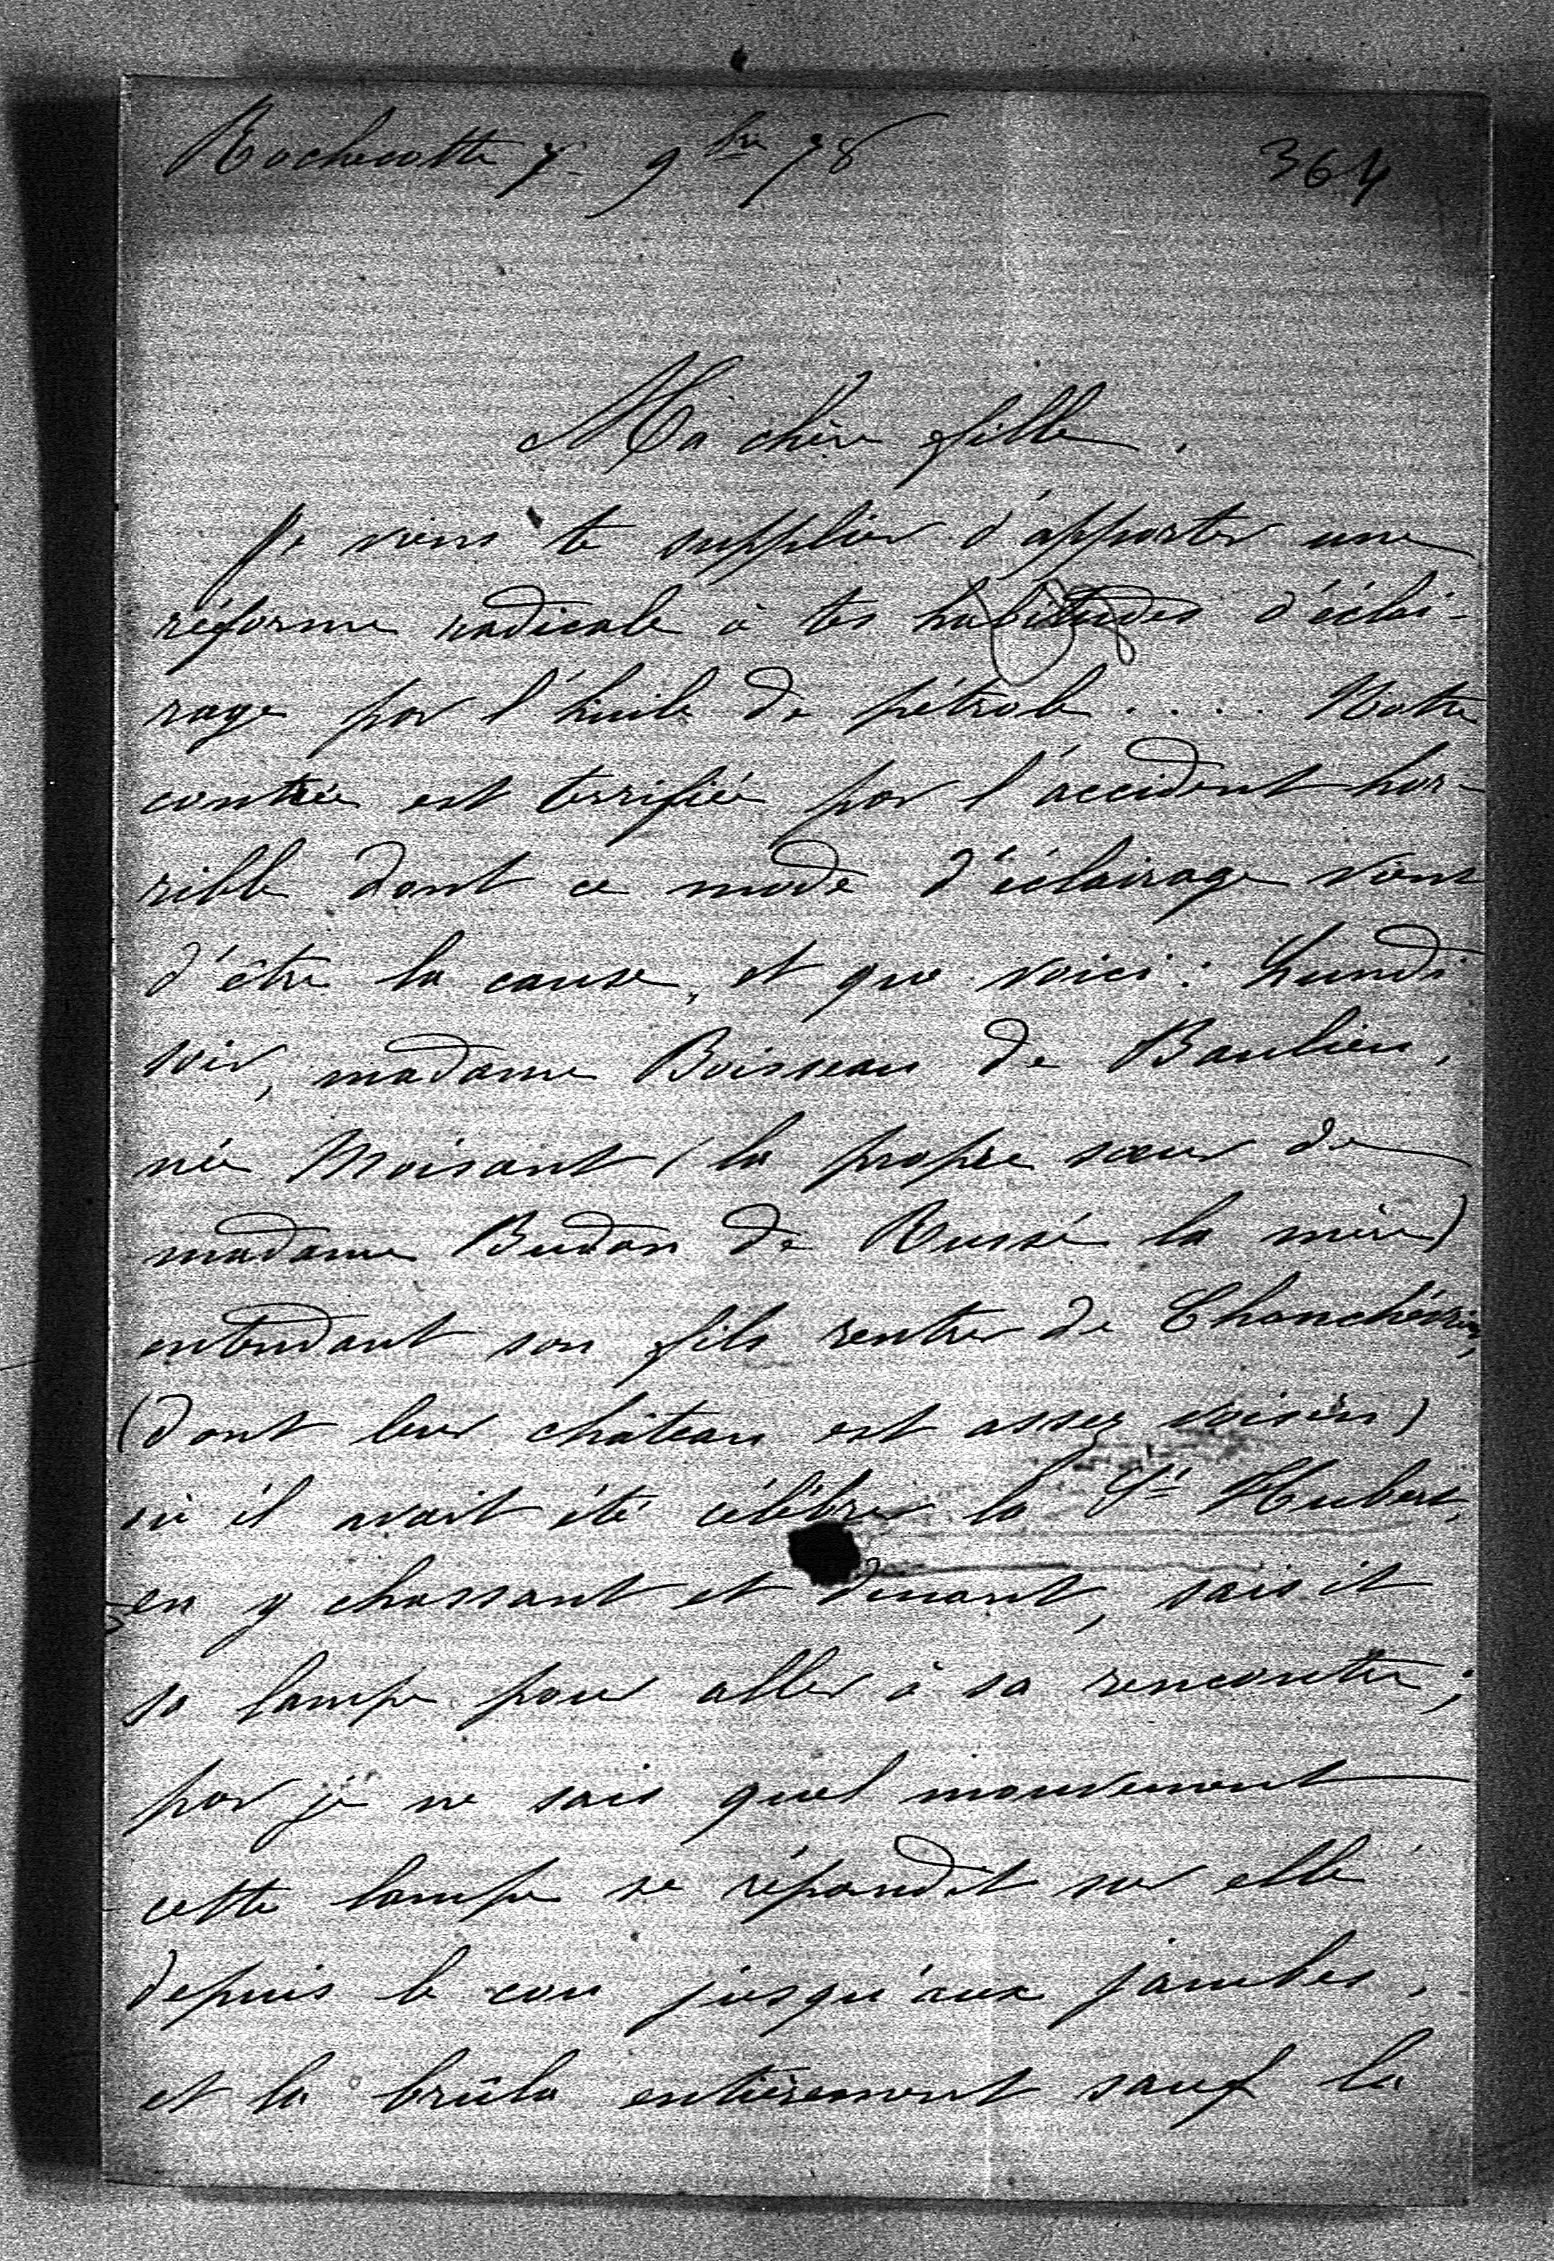 Rochecotte 7 9bre 78
364
Ma chère fille,
Je viens te supplier d'apporter une
réforme radicale à tes habitudes d'éclai-
rage par l'huile de pétrole.... Notre
contrée est terrifiée par l'accident hor-
rible dont ce mode d'éclairage vient
d'être la cause, et que voici : Lundi
soir, madame Boisseau de Baulieu,
née Moisant (la propre sœur de
madame Budan de Russé la mère)
entendant son fils rentrer de
(dont leur château est assez voisin)
où il avait été célébrer la St Hubert,
en y chassant et dinant, saisit
sa lampe pour aller à sa rencontre ;
par je ne sais quel mouvement
cette lampe se répandit sur elle
depuis le cou jusqu'aux jambes,
et la brûla entièrement sauf la